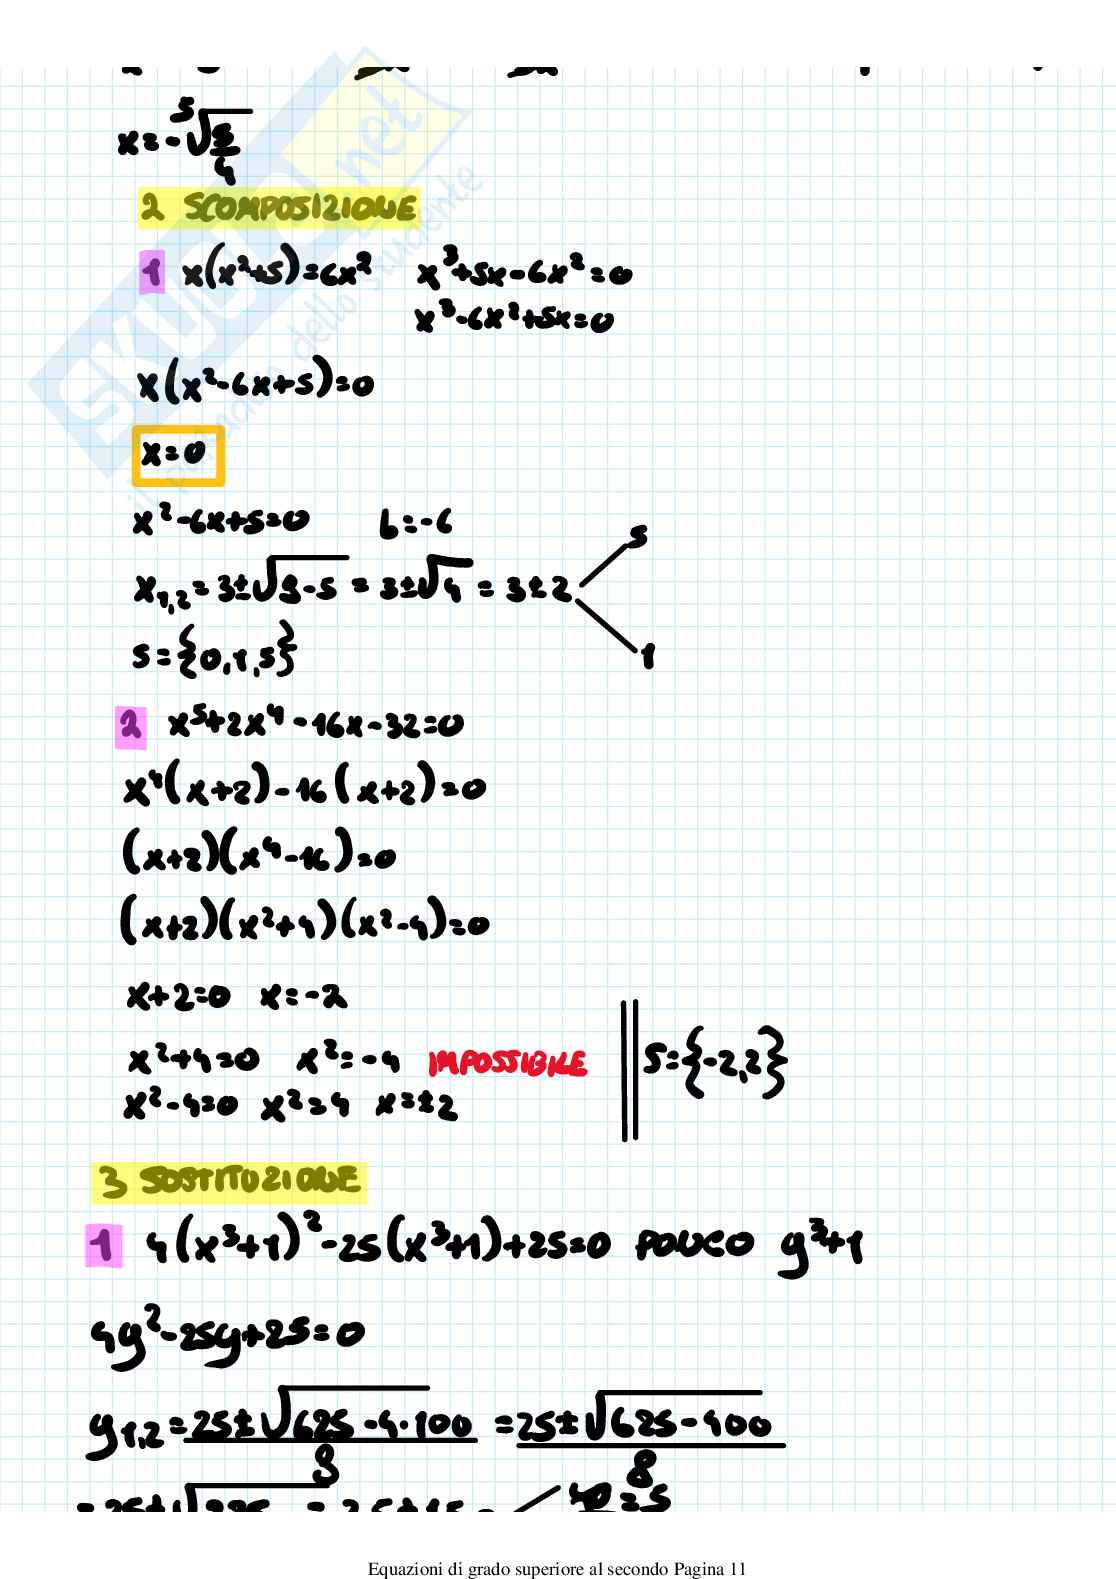 x=-⁵√5/4
2 SCOMPOSIZIONE
1 x(x²+5)=6x² x³+5x-6x²=0
x³-6x²+5x=0
x(x²-6x+5)=0
x=0
x²-6x+5=0 b=-6
x₁,₂=3±√9-5 = 3±√4 = 3±2 5
1
S={0,1,5}
2 x⁵+2x⁴-16x-32=0
x⁴(x+2)-16(x+2)=0
(x+2)(x⁴-16)=0
(x+2)(x²+4)(x²-4)=0
x+2=0 x=-2
x²+4=0 x²=-4 IMPOSSIBILE S={-2,2}
x²-4=0 x²=4 x=±2
3 SOSTITUZIONE
1 4(x³+1)²-25(x³+1)+25=0 PONGO y³+1
4y²-25y+25=0
y₁,₂=25±√625-4·100/8 =25±√625-400/8
=25±√225 =25±15 = 40=5
SKUOLA.net
il portale dello studente
Equazioni di grado superiore al secondo Pagina 11